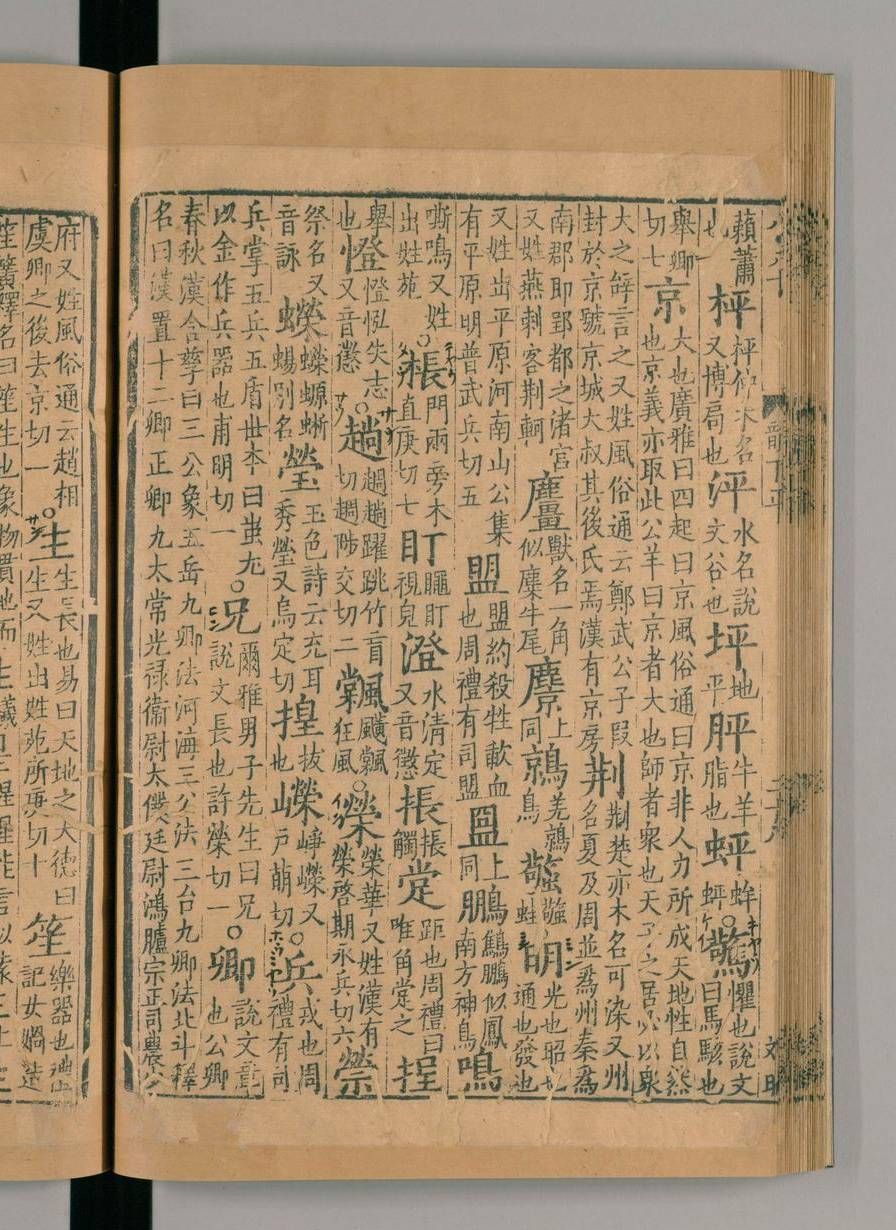 蘋蕭也枰枰仲木名又博局也泙水名說文谷也坪地平胓牛羊脂也蚲○驚懼也說文曰馬駭也
舉卿切七京大也廣雅曰四起曰京風俗通曰京非人力所成天地性自然也京義亦取此公羊曰京者大也師者衆也天子之居必以衆
大之辤言之又姓風俗通云鄭武公子段封於京號京城大叔其後氏焉漢有京房荆荆楚亦木名可染又州名夏及周並爲州秦爲
南郡即郢都之渚宮又姓燕刺客荆軻麠獸名一角似麋牛尾麖上同鶁羌鶁鳥○明光也昭也通也發也
又姓出平原河南山公集有平原明普武兵切五盟盟約殺牲歃血也周禮有司盟上同鵬鷦鵬似鳳南方神鳥鳴
嘶鳴又姓出姓苑○棖門兩旁木直庚切七盯視皃澄水清定又音懲掁掁觸距也周禮曰唯角之
舉也憕憕失志又音懲○躍跳竹盲切交切二狂風○榮榮華又姓漢有榮啓期永兵切六禜
祭名又音詠蠑蠑螈蜥蜴別名瑩玉色詩云充耳琇瑩又烏定切揘拔也嶸崢嶸又戶萌切○兵戎也周禮有司
兵掌五兵五盾世本曰蚩尤以金作兵器也甫明切一○兄爾雅男子先生曰兄說文長也許榮切一○卿說文章也公卿
春秋漢含孳曰三公象五岳九卿法河海三公法三台九卿法北斗釋名曰漢置十二卿正卿九太常光禄衞尉太僕廷尉鴻臚宗正司農少
府又姓風俗通云趙相虞卿之後去京切一○生生長也易曰天地之大德曰生又姓出姓苑所庚切十笙樂器也禮記女媧造
笙簧釋名曰笙生也象物貫地而生